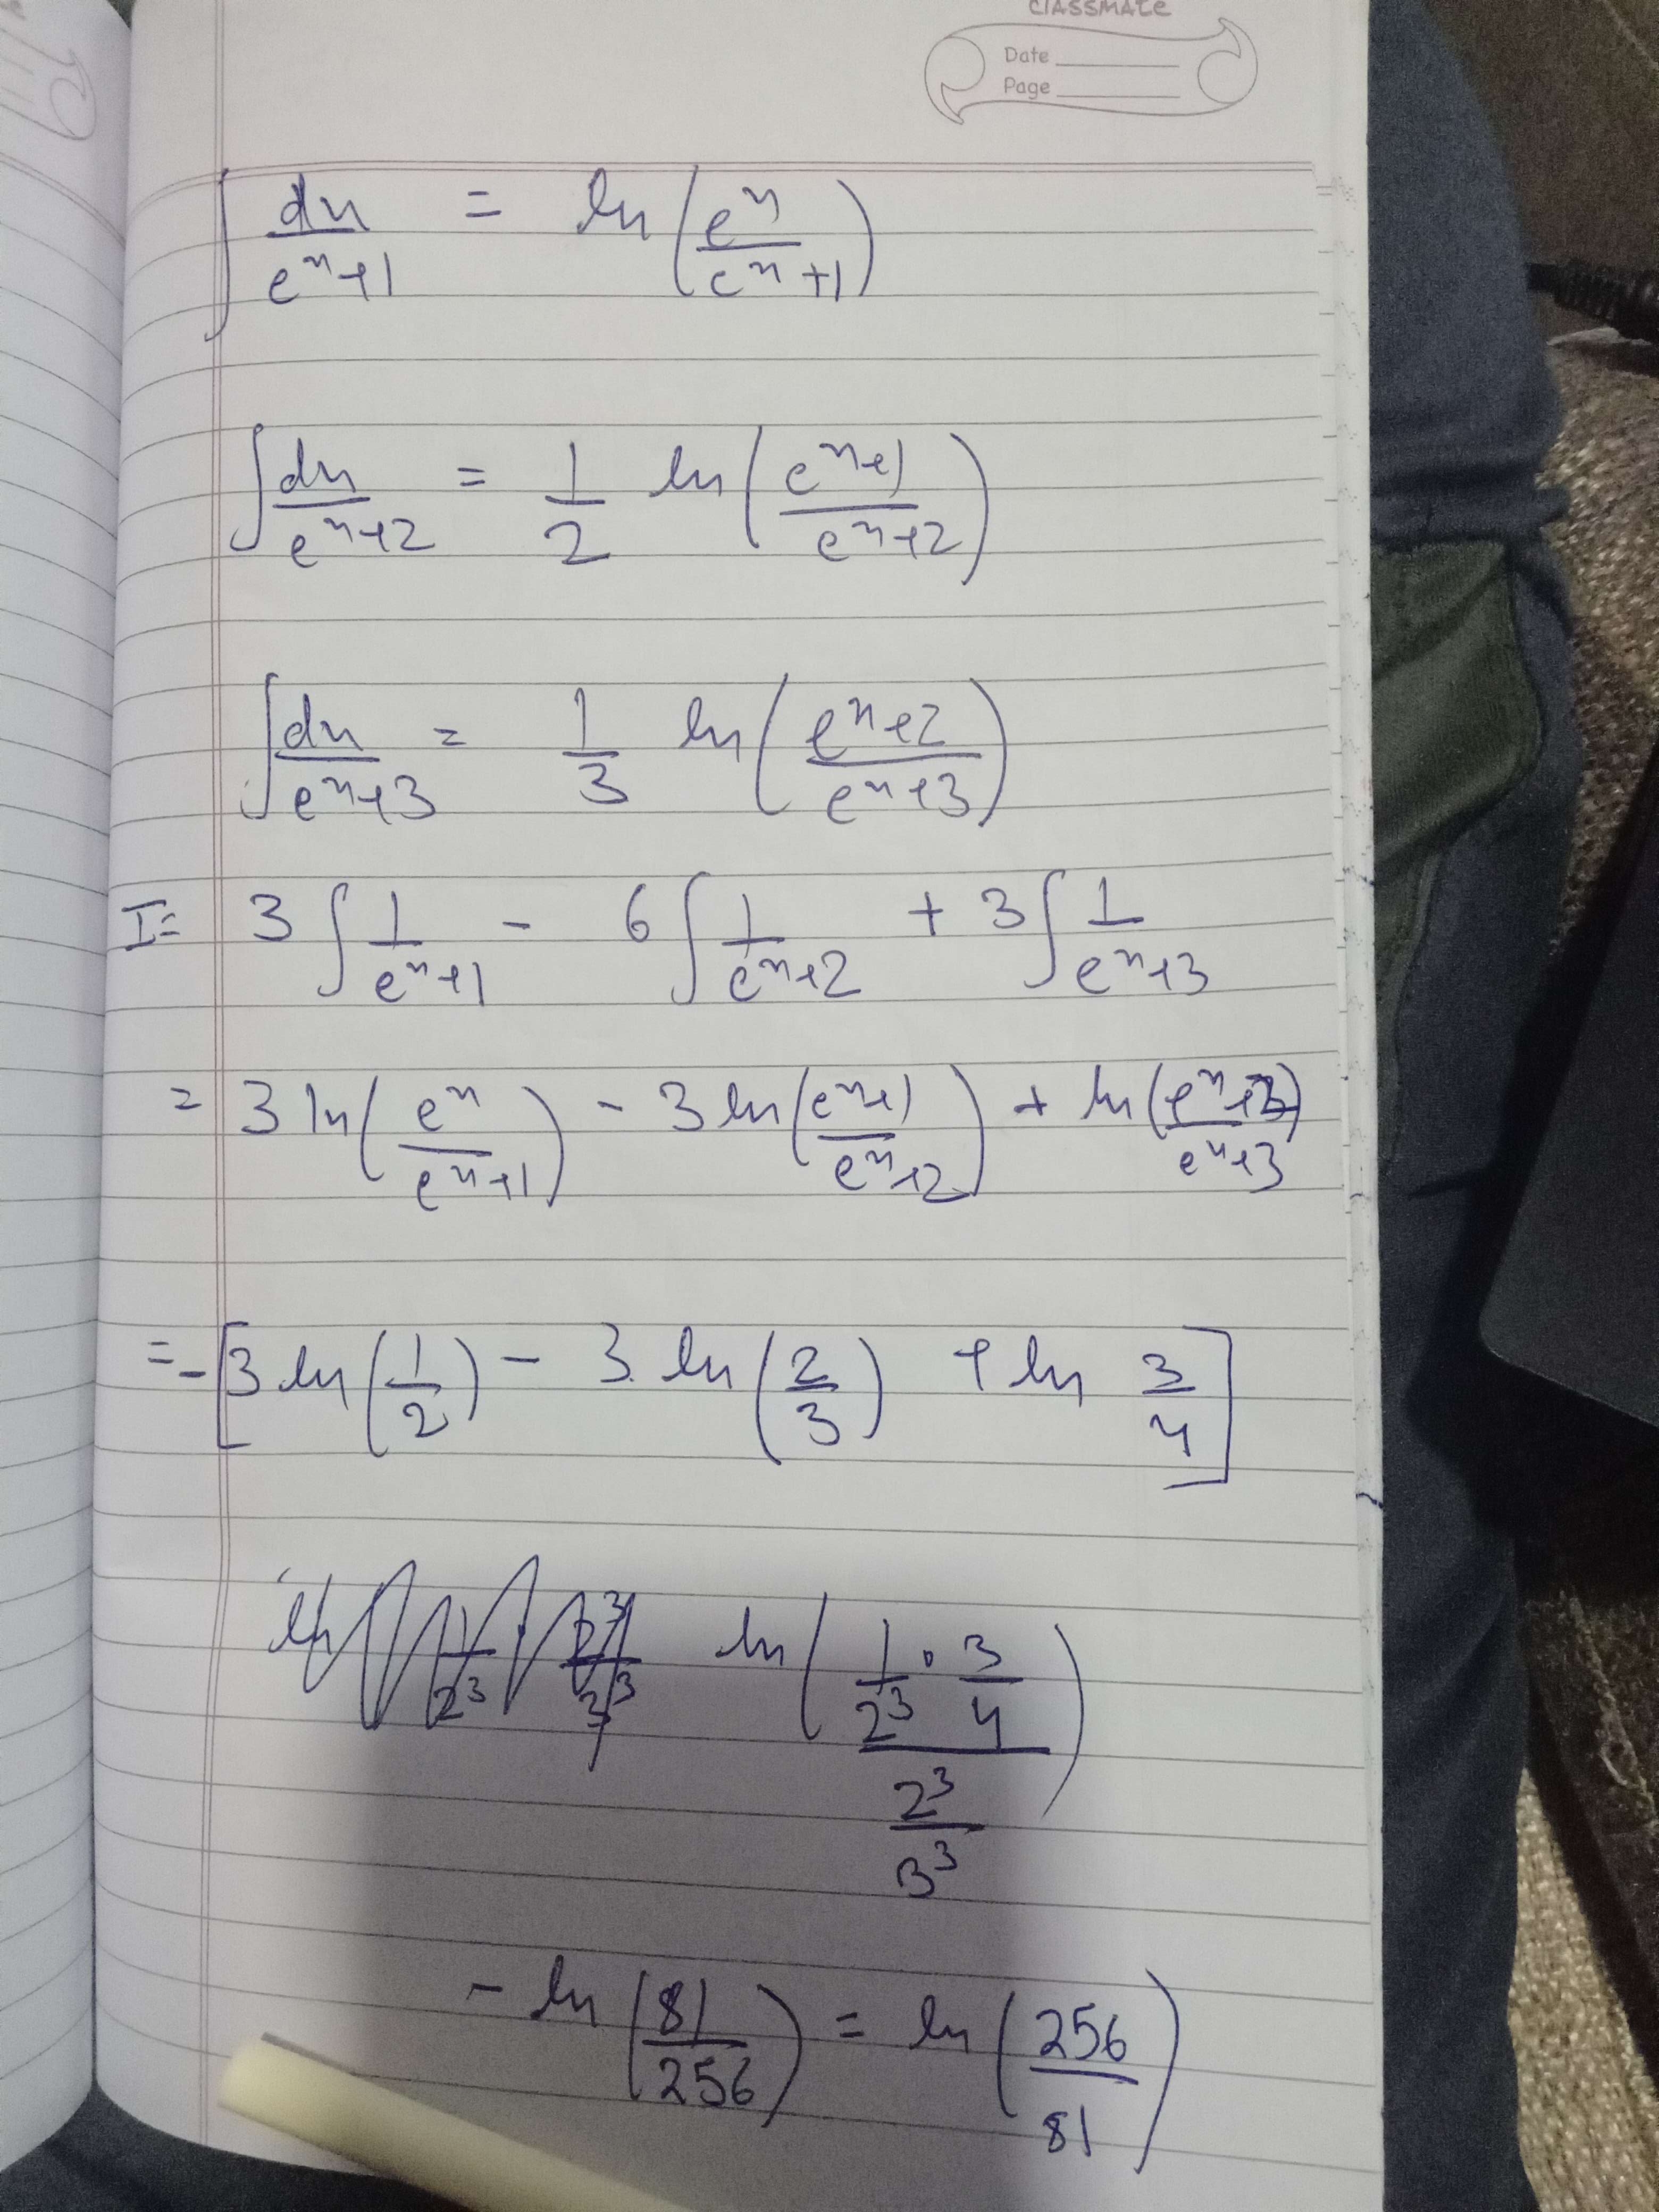 classmate
Date
Page
∫ dx/(e^x+1) = ln(e^x/(e^x+1))
∫ dx/(e^x+2) = 1/2 ln((e^x+1)/(e^x+2))
∫ dx/(e^x+3) = 1/3 ln((e^x+2)/(e^x+3))
I = 3∫ 1/(e^x+1) - 6∫ 1/(e^x+2) + 3∫ 1/(e^x+3)
= 3 ln(e^x/(e^x+1)) - 3 ln((e^x+1)/(e^x+2)) + ln((e^x+2)/(e^x+3))
= -[3 ln(1/2) - 3 ln(2/3) + ln 3/4]
ln((1/2^3 · 3/4)/(2^3/3^3))
- ln(81/256) = ln(256/81)